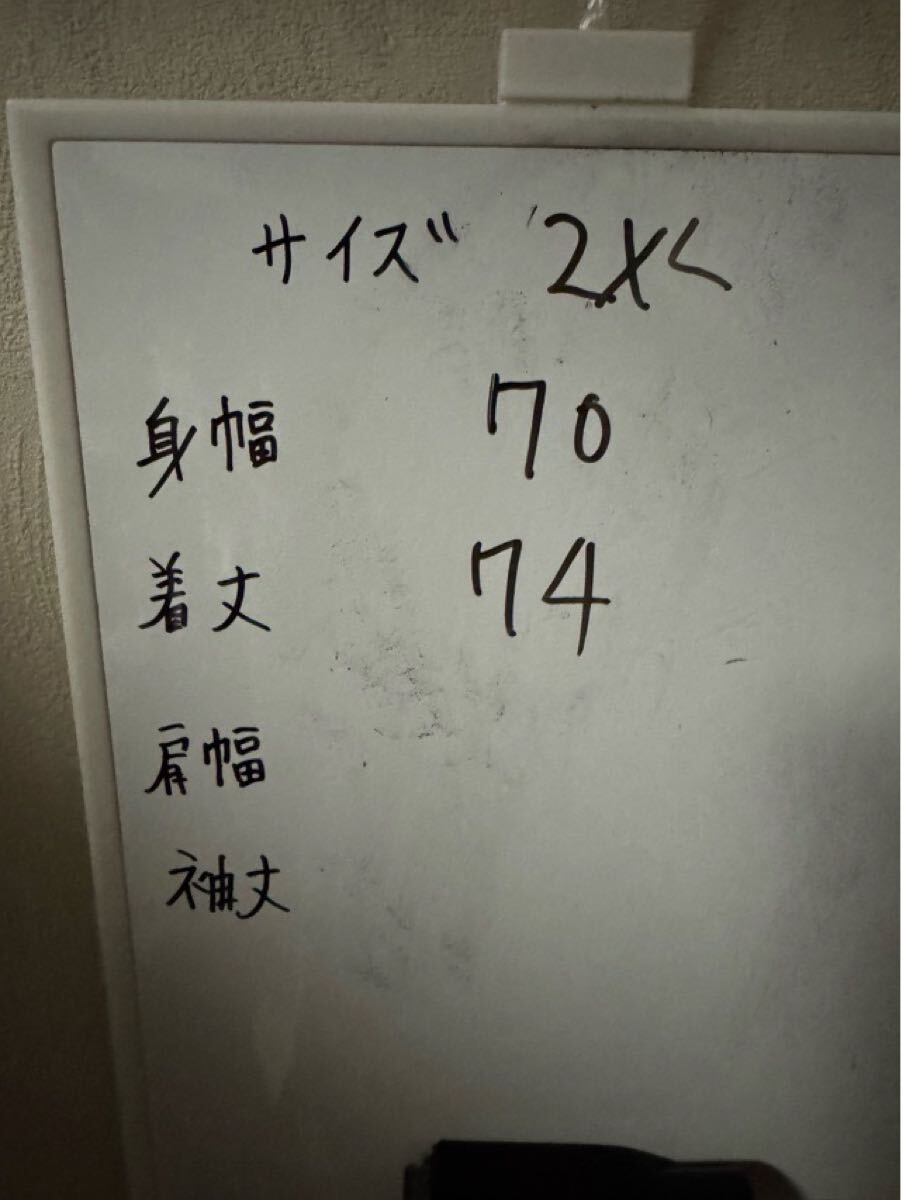 サイズ 2XL
身幅 70
着丈 74
肩幅
袖丈